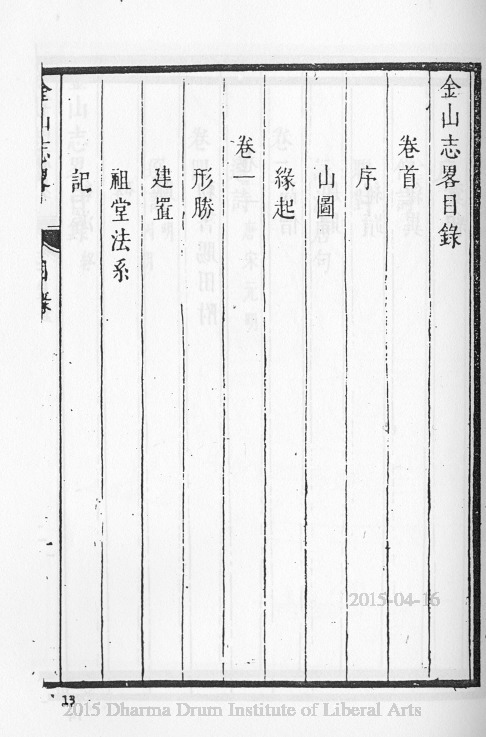 金山志畧目錄
卷首
序
山圖
緣起
卷一
形勝
建置
祖堂法系
記
金山志畧
目錄
13
2015-04-16
2015 Dharma Drum Institute of Liberal Arts